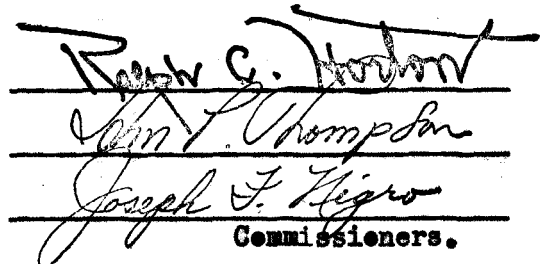 Ralph C. Horton
John P. Thompson
Joseph F. Nigro
Commissioners.